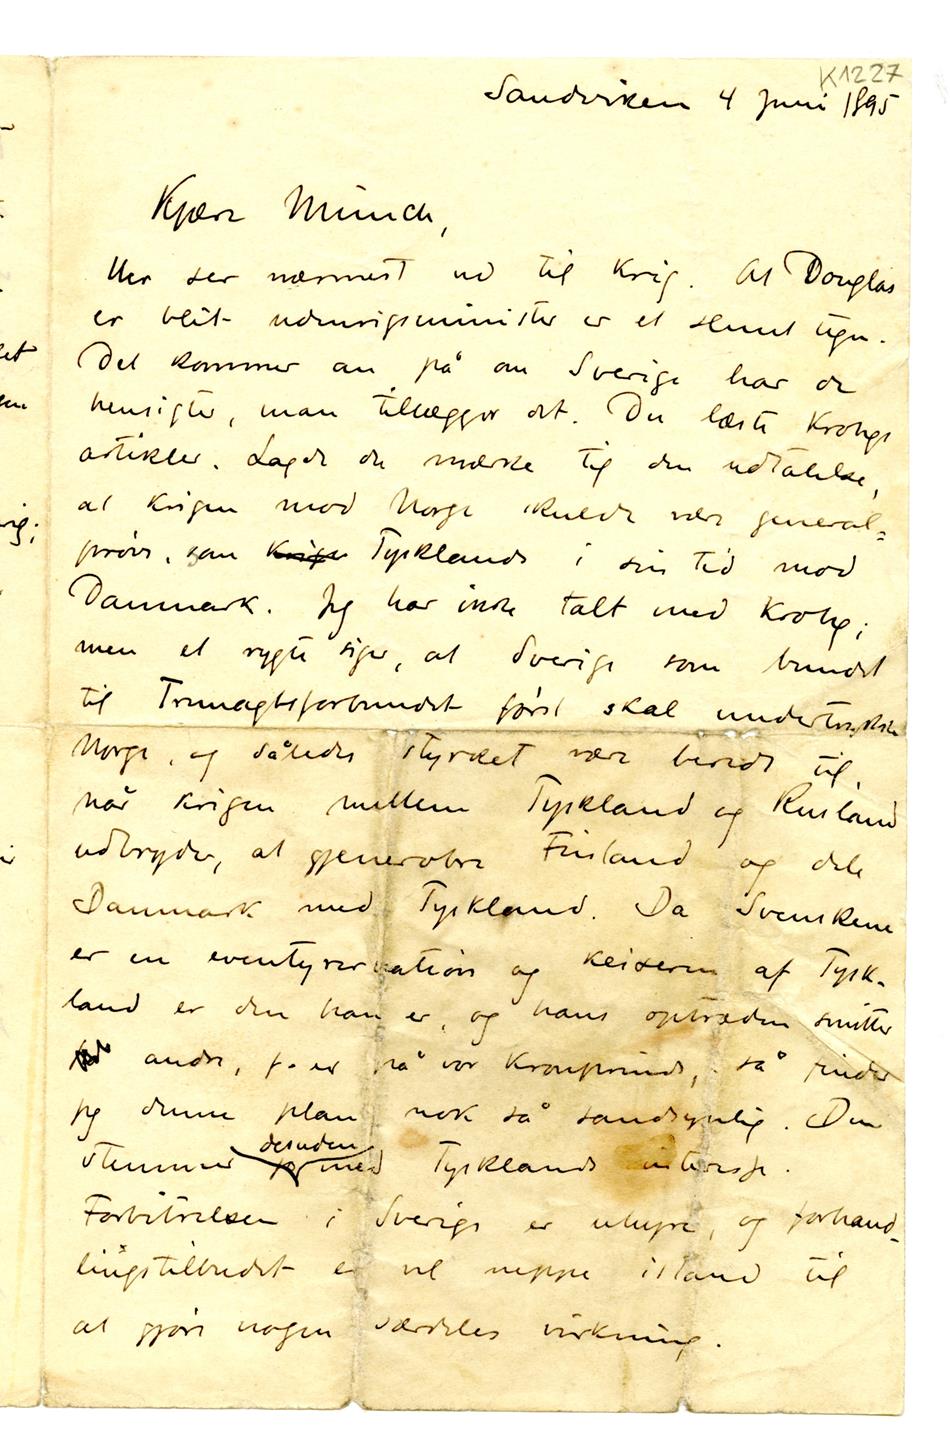 K1227
Sandviken 4 Juni 1895
Kjære Munch,
Her ser nærmest ud til Krig. At Douglas
er blit udenrigsminister er et slemt tegn.
Det kommer an på om Sverige har de
hensigter, man tillægger det. Du læste Krohgs
artikler. Lagde du mærke til den udtalelse,
at krigen mod Norge skulde være general=
prøve, som Krige Tysklands i sin tid mod
Danmark. Jeg har ikke talt med Krohg;
men et rygte siger, at Sverige som bundet
til Tremagtsforbundet først skal undertrykke
Norge, og således styrket være beredt til,
når krigen mellem Tyskland og Rusland
udbryder, at generobre Finland og dele
Danmark med Tyskland. Da Svenskene
er en eventyrernation og keiseren af Tysk-
land er den han er, og hans optræden smitter
andre, f. ex på vor Kronprinds, så finder
jeg denne plan nok så sandsynlig. Den
stemmer desuden med Tysklands interesse.
Forbitrelsen i Sverige er uhyre, og forhand-
lingstilbudet er vel neppe istand til
at gjøre nogen særdeles virkning.